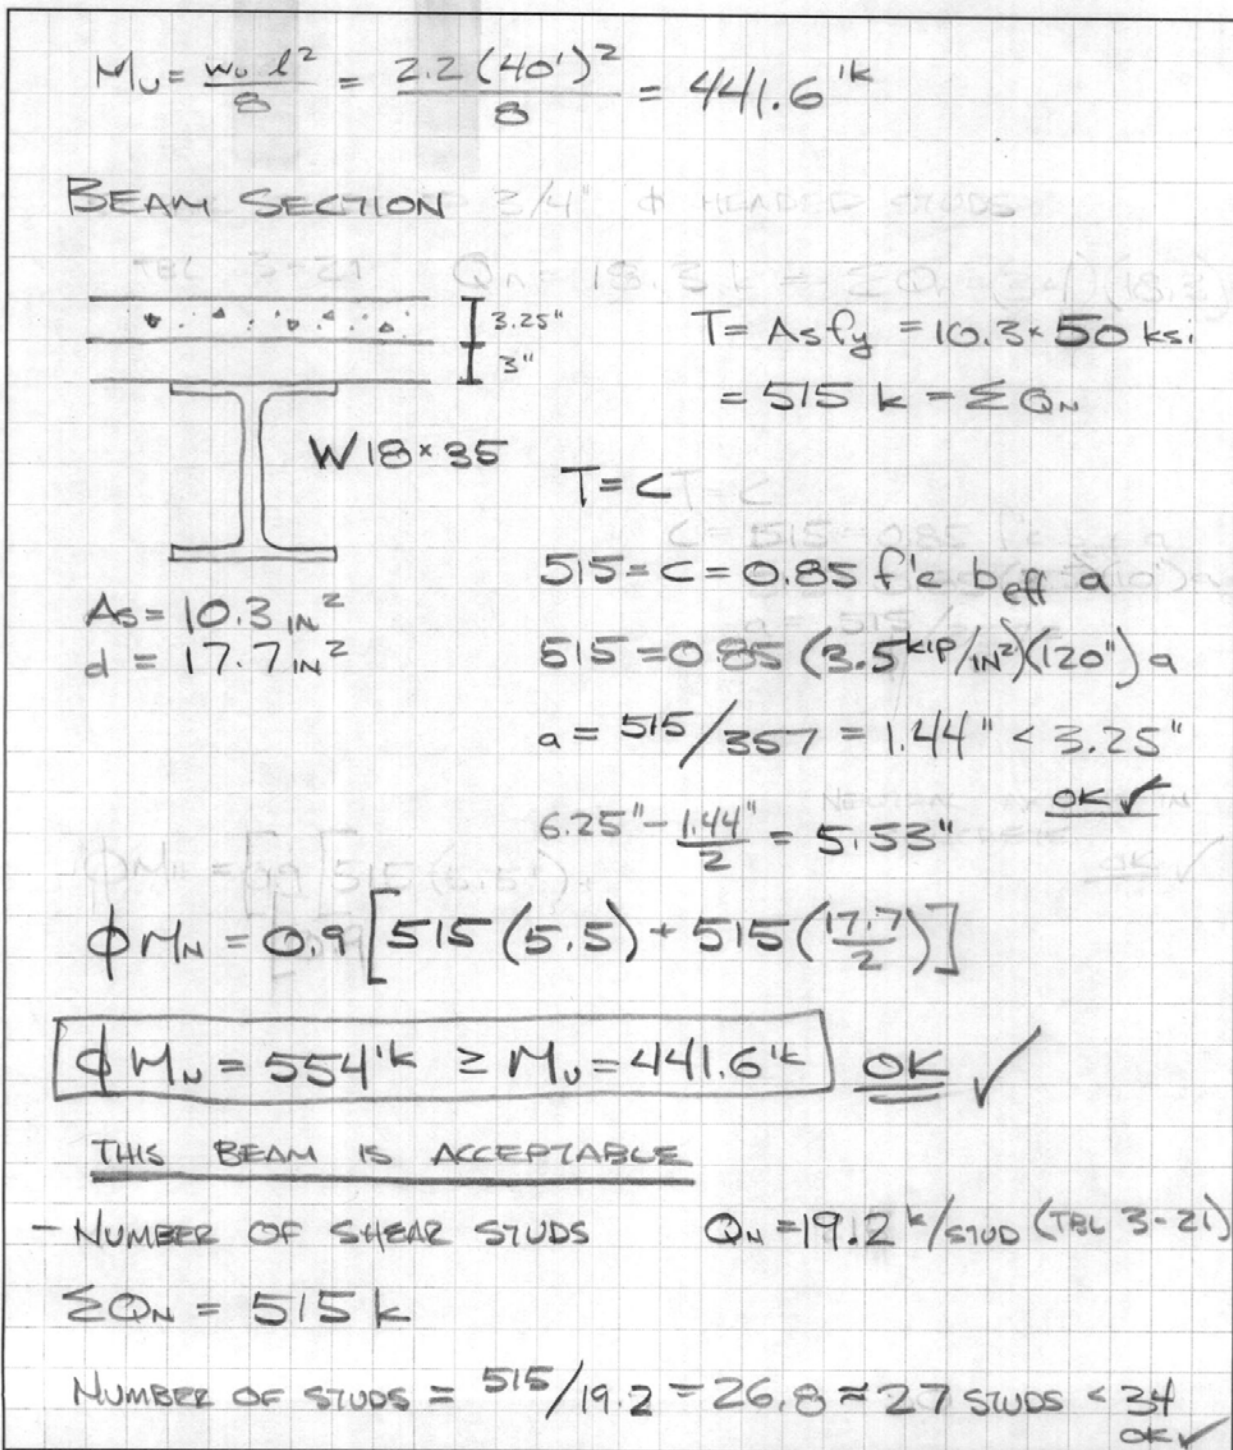 Mu = wu l² / 8 = 2.2 (40')² / 8 = 441.6 'k
BEAM SECTION
3/4" ϕ HEADED STUDS
TBL 3-21 Qn = 18.3 k
3.25"
3"
T = As fy = 10.3 × 50 ksi
= 515 k = ΣQN
W18×35
T = C
T = C
C = 515 = 0.85
515 = C = 0.85 f'c beff a
As = 10.3 IN²
d = 17.7 IN²
515 = 0.85 (3.5 KIP/IN²)(120") a
a = 515/357 = 1.44" < 3.25"
OK ✓
6.25" - 1.44"/2 = 5.53"
OK ✓
ϕMN = 0.9 [515 (5.5) + 515 (17.7/2)]
ϕMN = 554 'k ≥ Mu = 441.6 'k OK ✓
THIS BEAM IS ACCEPTABLE
- NUMBER OF SHEAR STUDS QN = 19.2 k/STUD (TBL 3-21)
ΣQN = 515 k
NUMBER OF STUDS = 515/19.2 = 26.8 ≈ 27 STUDS < 34
OK ✓